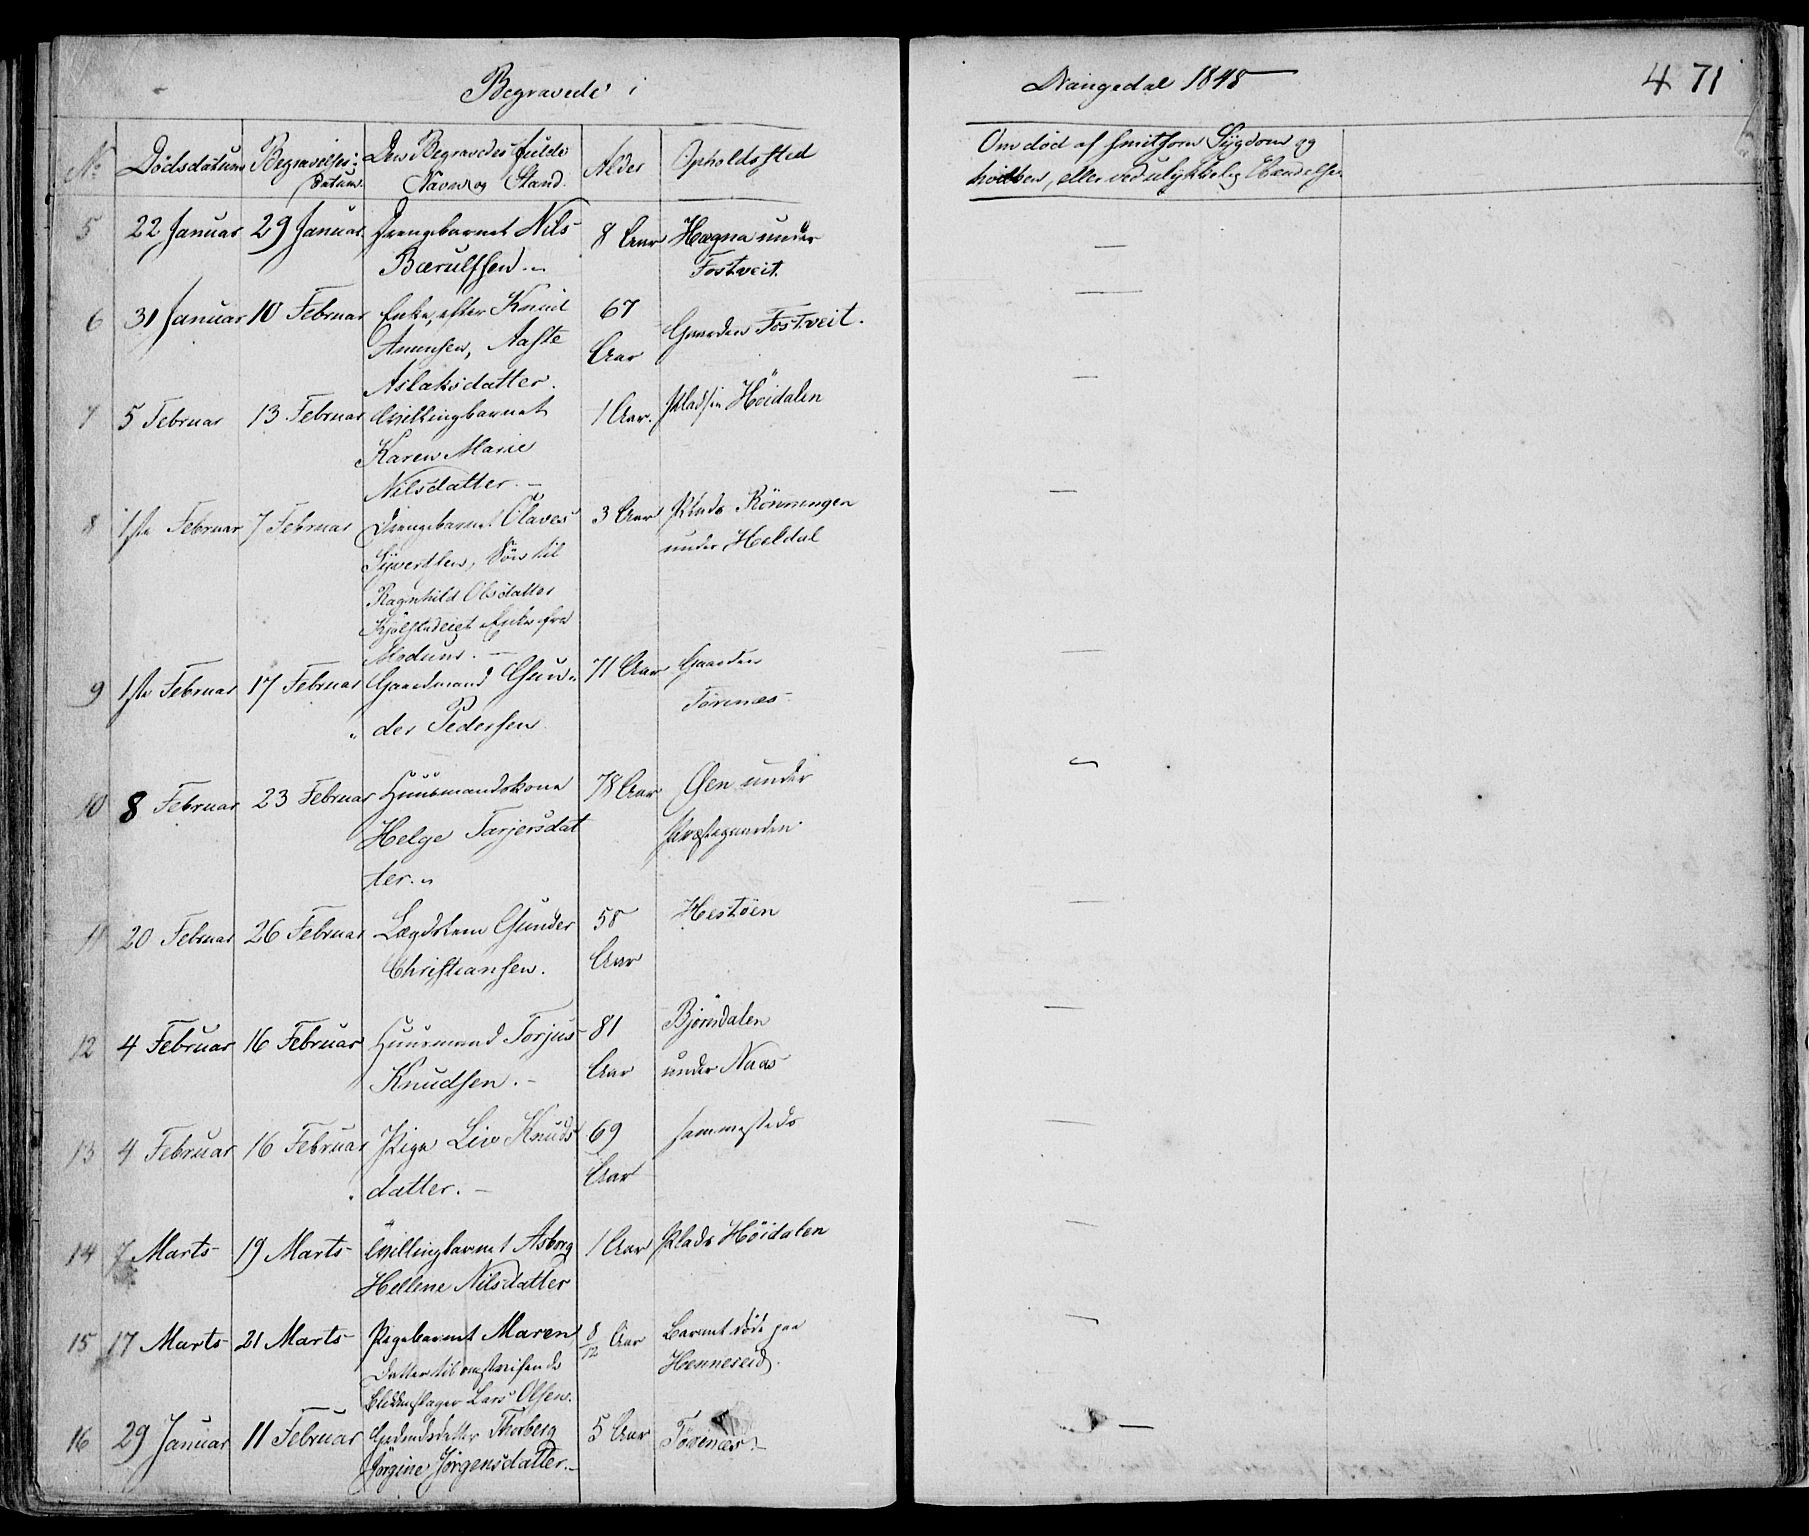 Begravede i Drangedal 1848
471
No
Dødsdatum
Begravelses-
Datum.
Den Begravedes fulde
Navn og Stand.
Alder
Opholdssted
Om død af smitsom Sygdom og
hvilken, eller ved ulykkelig Hændelse.
5 22 Januar 29 Januar Drengbarnet Nils 8 Aar Hægna under
Bærulfsen. Fostveit.
6 31 Januar 10 Februar Enke efter Knud 67 Gaarden Fostveit.
Amunsen, Aaste Aar
Aslaksdatter.
7 5 Februar 13 Februar Tvillingbarnet 1 Aar. Pladsen Höidalen
Karen Marie
Nilsdatter. —
8 1ste Februar 7 Februar Drengebarnet Olaves 3 Aar Plads Rönningen
Syvertsen, Sön til under Heldal
Ragnhild Olsdatter
Enke fra
Modum. —
9 1ste Februar 17 Februar Gaardmand Gun- 71 Aar Gaarden
der Pedersen Tørenæs
10 8 Februar 23 Februar Huusmandskone 78 Aar Øen under
Helge Tarjersdat Præstegaarden.
ter.
11 20 Februar 26 Februar Lægdslem Gunder 58 Hestöen
Christiansen. Aar
12 4 Februar 16 Februar Huusmand Torjus 81 Björndalen
Knudsen. — Aar under Naas
13 4 Februar 16 Februar Pige Liv Knuds 69 sammesteds
datter. — Aar
14 7 Marts 19 Marts Tvillingbarnet Asborg 1 Aar Plads Höidalen
Hellene Nilsdatter
15 17 Marts 21 Marts Pigebarnet Maren 8/12 Aar Barnet döde paa
Datter til omstreifende Henneseid.
Blikkenslager Lars Olsen.
16 29 Januar 11 Februar Thorberg 5 Aar Tørenæs
Jörgine Jörgensdatter. —